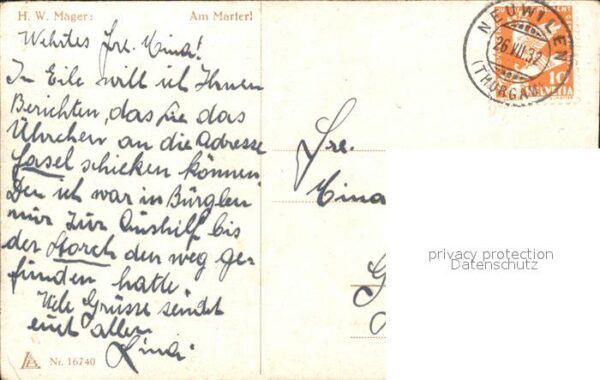 H. W. Mager: Am Marterl
Wehrtes Fre. Mina!
In Eile will ich Ihnen
Berichten, das Sie das
Ührchen an die Adresse
Gasel schicken können.
Den ich war in Bürglen
nur zur Aushilf bis
der Storch den weg ge-
funden hatte.
Viele Grüsse sendet
euch allen
Lina.
Nr. 16740
NEUWILEN
26.VII.32
(THURGAU)
10
HELVETIA
Fre.
Mina
privacy protection
Datenschutz